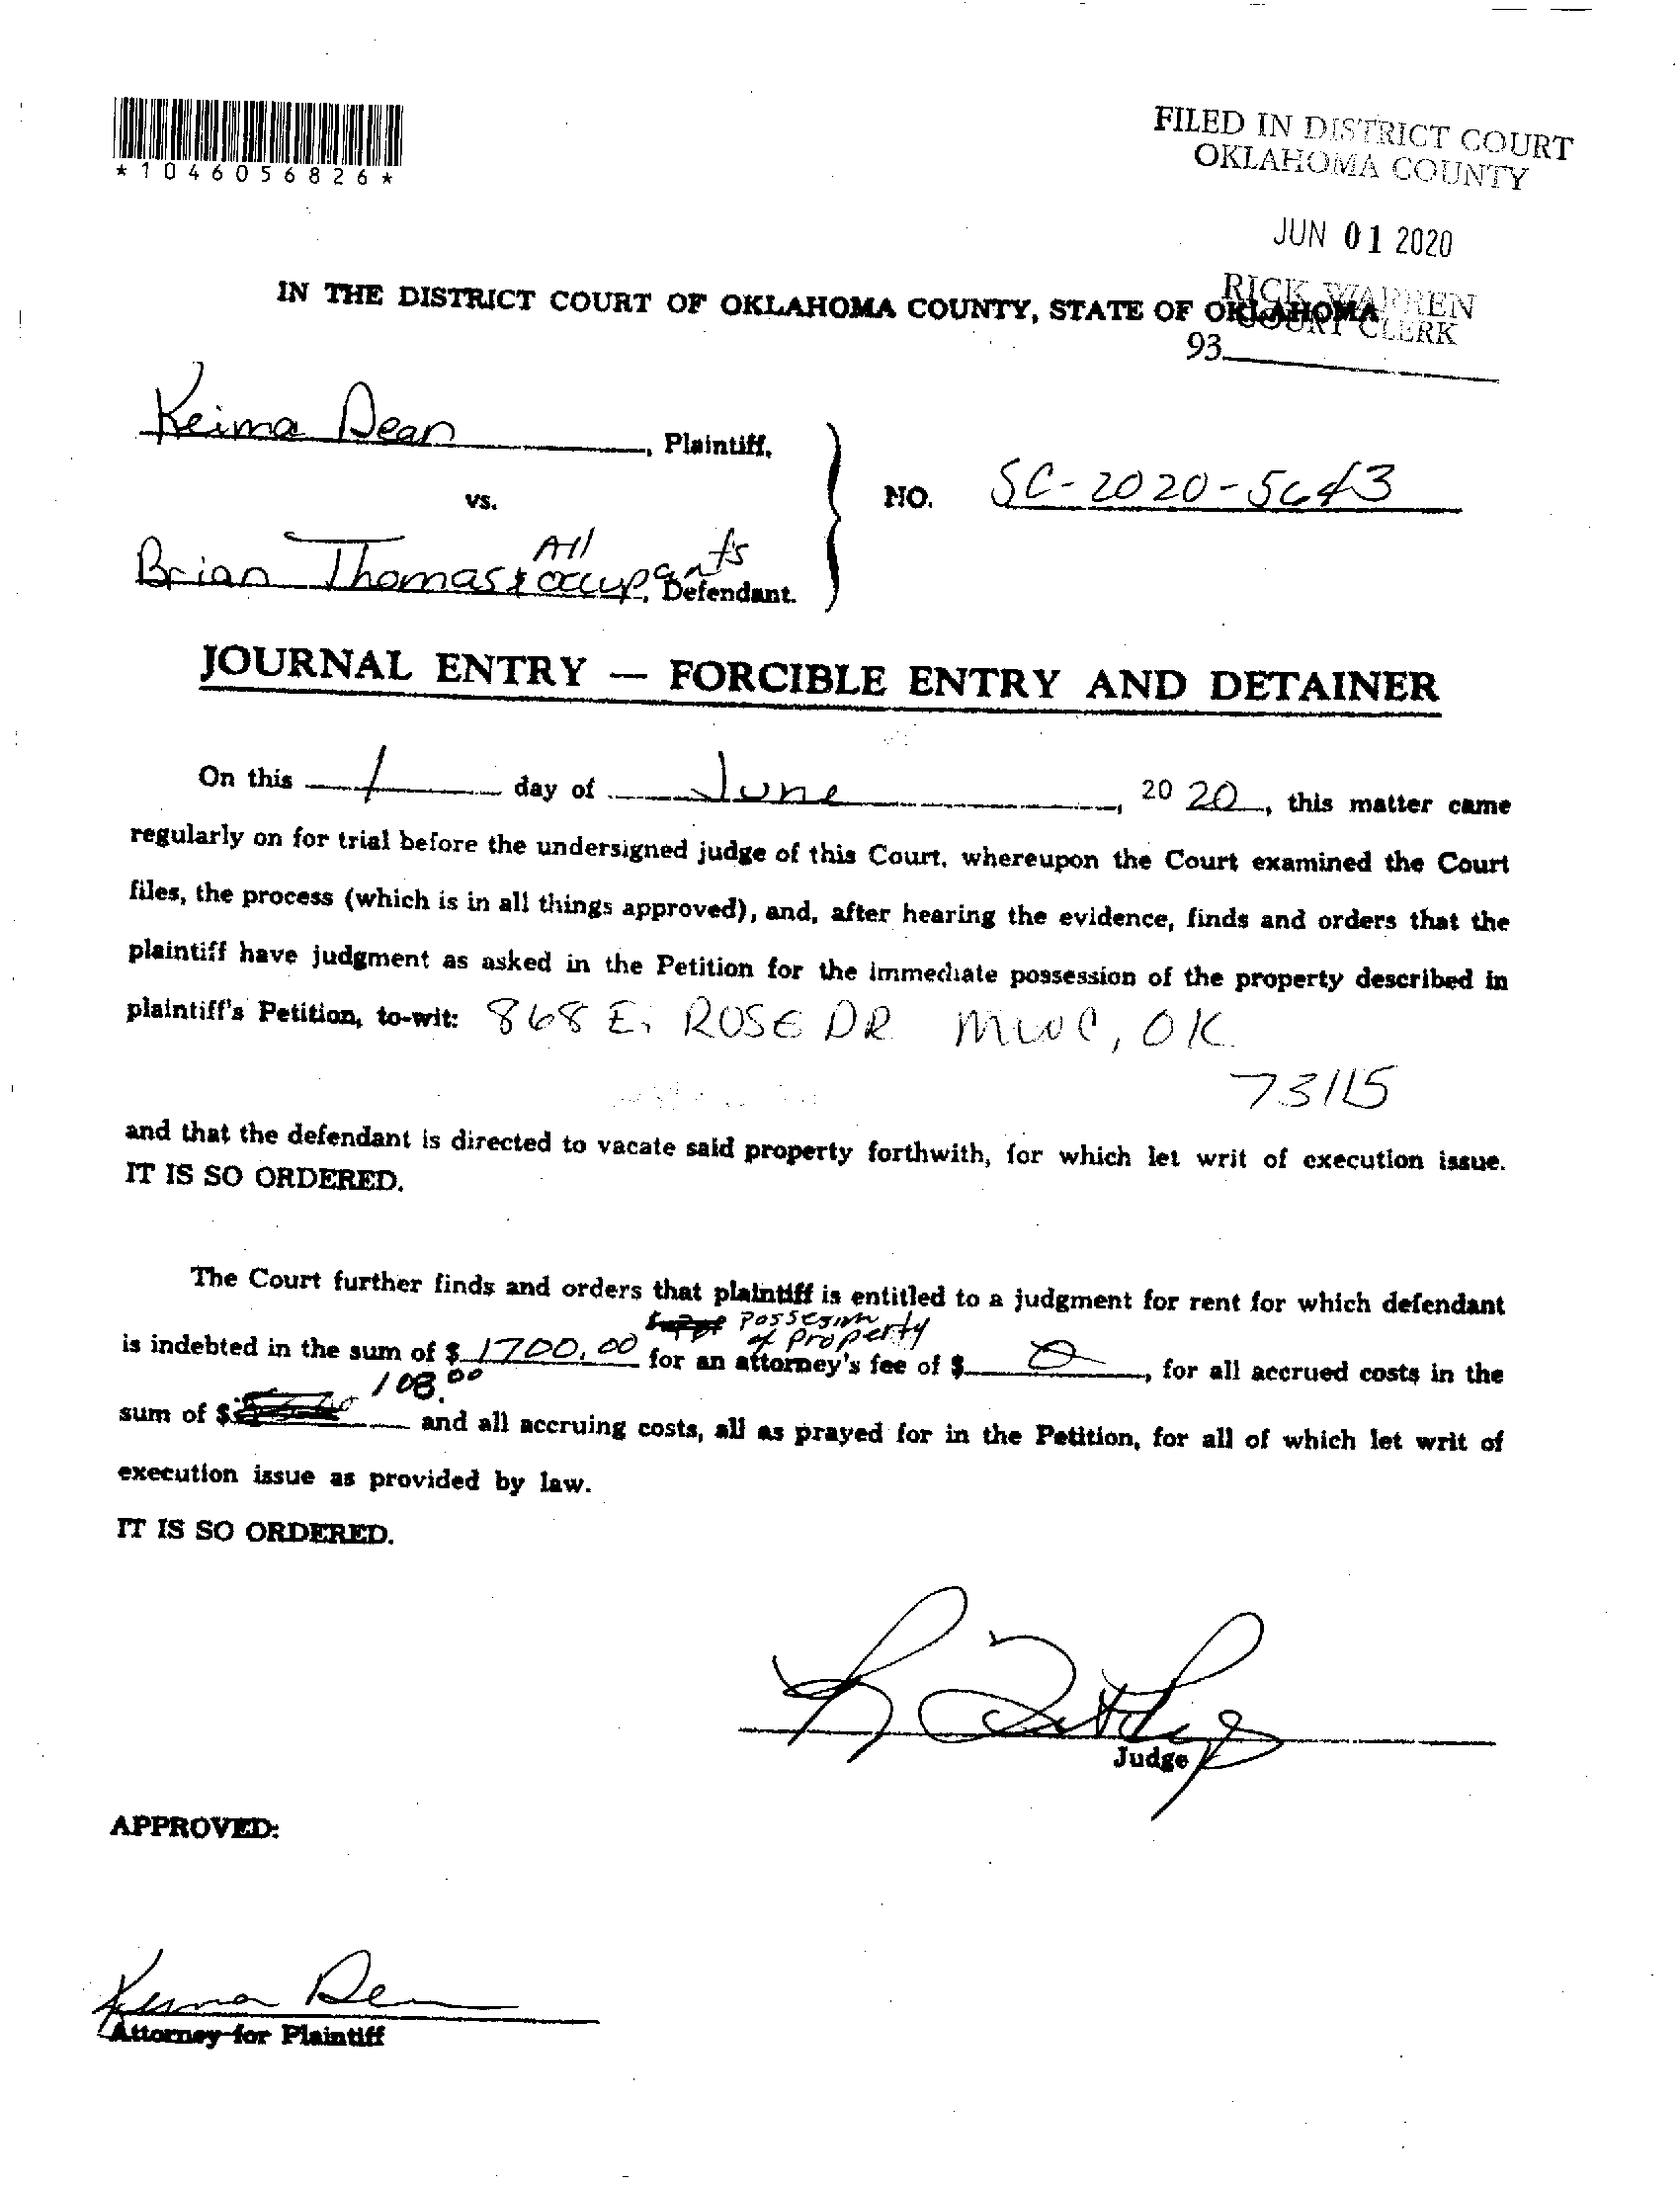 *1046056826*
FILED IN DISTRICT COURT
OKLAHOMA COUNTY
JUN 01 2020
RICK WARREN
COURT CLERK
93
IN THE DISTRICT COURT OF OKLAHOMA COUNTY, STATE OF OKLAHOMA
Keima Dean, Plaintiff,
vs.
NO. SC-2020-5643
All
Brian Thomas & occupants, Defendant.
JOURNAL ENTRY — FORCIBLE ENTRY AND DETAINER
On this 1 day of June, 20 20, this matter came
regularly on for trial before the undersigned judge of this Court, whereupon the Court examined the Court
files, the process (which is in all things approved), and, after hearing the evidence, finds and orders that the
plaintiff have judgment as asked in the Petition for the immediate possession of the property described in
plaintiff's Petition, to-wit: 868 E. ROSE DR MWC, OK
73115
and that the defendant is directed to vacate said property forthwith, for which let writ of execution issue.
IT IS SO ORDERED.
The Court further finds and orders that plaintiff is entitled to a judgment for rent for which defendant
Possesion
of Property
is indebted in the sum of $ 1700.00 for an attorney's fee of $ 0, for all accrued costs in the
108.00
sum of $ and all accruing costs, all as prayed for in the Petition, for all of which let writ of
execution issue as provided by law.
IT IS SO ORDERED.
Judge
APPROVED:
Keima De
Attorney for Plaintiff